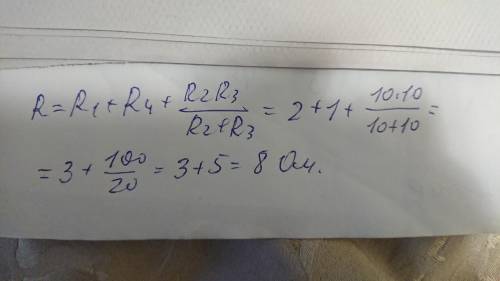 R = R1 + R4 + R2R3 / R2+R3 = 2 + 1 + 10·10 / 10+10 =
= 3 + 100 / 20 = 3 + 5 = 8 Ом.